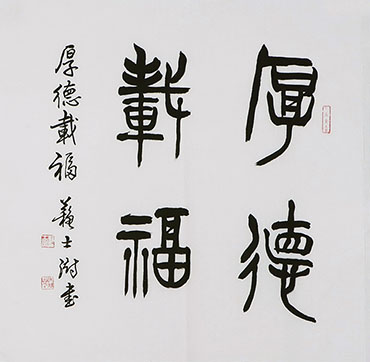 厚德
載福
厚德載福 蘇士澍書